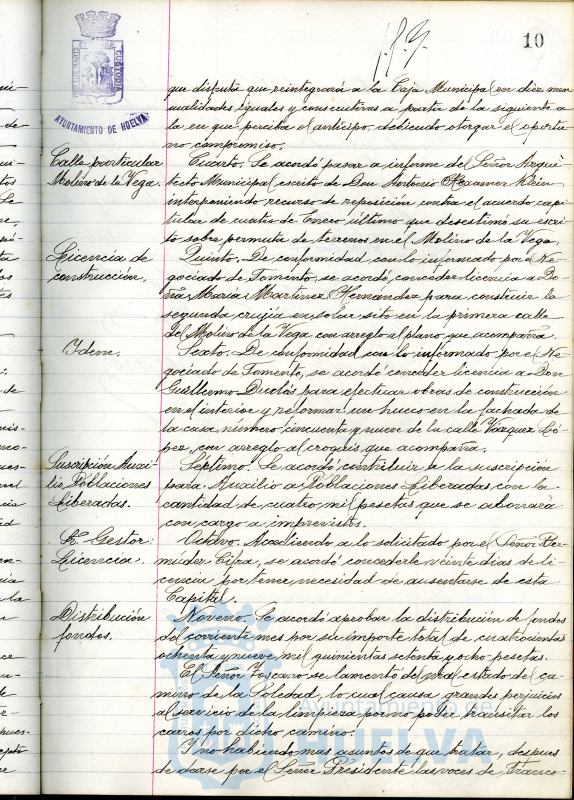 10
AYUNTAMIENTO DE HUELVA
que disfruta que reintegrará a la Caja Municipal en diez men
sualidades iguales y consecutivas a partir de la siguiente a
la en que perciba el anticipo, debiendo otorgar el oportu
no compromiso.
Calle particular
Molino de la Vega.
Cuarto. Se acordó pasar a informe del Señor Arqui
tecto Municipal escrito de Don Antonio Klein
interponiendo recurso de reposición contra el acuerdo capi
tular de cuatro de Enero último que desestimó su escri
to sobre permuta de terrenos en el Molino de la Vega.
Licencia de
construcción.
Quinto. De conformidad con lo informado por el Ne
gociado de Fomento, se acordó, conceder licencia a Do
ña María Martinez Hernandez para construir la
segunda crujía en solar sito en la primera calle
del Molino de la Vega con arreglo al plano que acompaña.
Idem.
Sexto. De conformidad con lo informado por el Ne
gociado de Fomento, se acordó conceder licencia a Don
Guillermo Duclós para efectuar obras de construcción
en el interior y reformar un hueco en la fachada de
la casa número cincuenta y nueve de la calle Vázquez Ló
pez, con arreglo al croquis que acompaña.
Suscripción Auxi
lio Poblaciones
Liberadas.
Séptimo. Se acordó contribuir a la suscripción
para Auxilio a Poblaciones Liberadas con la
cantidad de cuatro mil pesetas que se abonará
con cargo a imprevistos.
Gestor:
Licencia.
Octavo. Accediendo a lo solicitado por el Señor Ber
múdez Cifra, se acordó concederle veinte dias de li
cencia por tener necesidad de ausentarse de esta
Capital.
Distribución
fondos.
Noveno. Se acordó aprobar la distribución de fondos
del corriente mes por su importe total de cuatrocientas
ochenta y nueve mil quinientas setenta y ocho pesetas.
El Señor Toscano se lamentó del mal estado del ca
mino de la Soledad, lo cual causa grandes perjuicios
al servicio de la limpieza por no poder transitar los
carros por dicho camino.
Y no habiendo mas asuntos de que tratar, despues
de darse por el Señor Presidente las voces de Franco
Ayuntamiento de
HUELVA